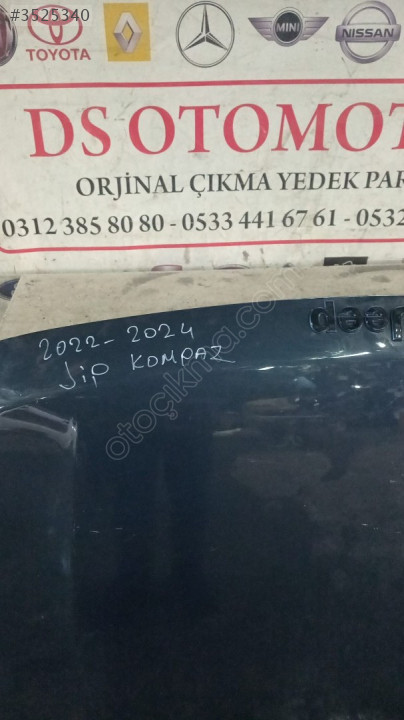 #3525340
TOYOTA
RENAULT
MINI
NISSAN
DS OTOMOT
ORJİNAL ÇIKMA YEDEK PAR
0312 385 80 80 - 0533 441 67 61 - 0532
Jeep
2022-2024
JiP KOMPAZ
otoçıkma.com